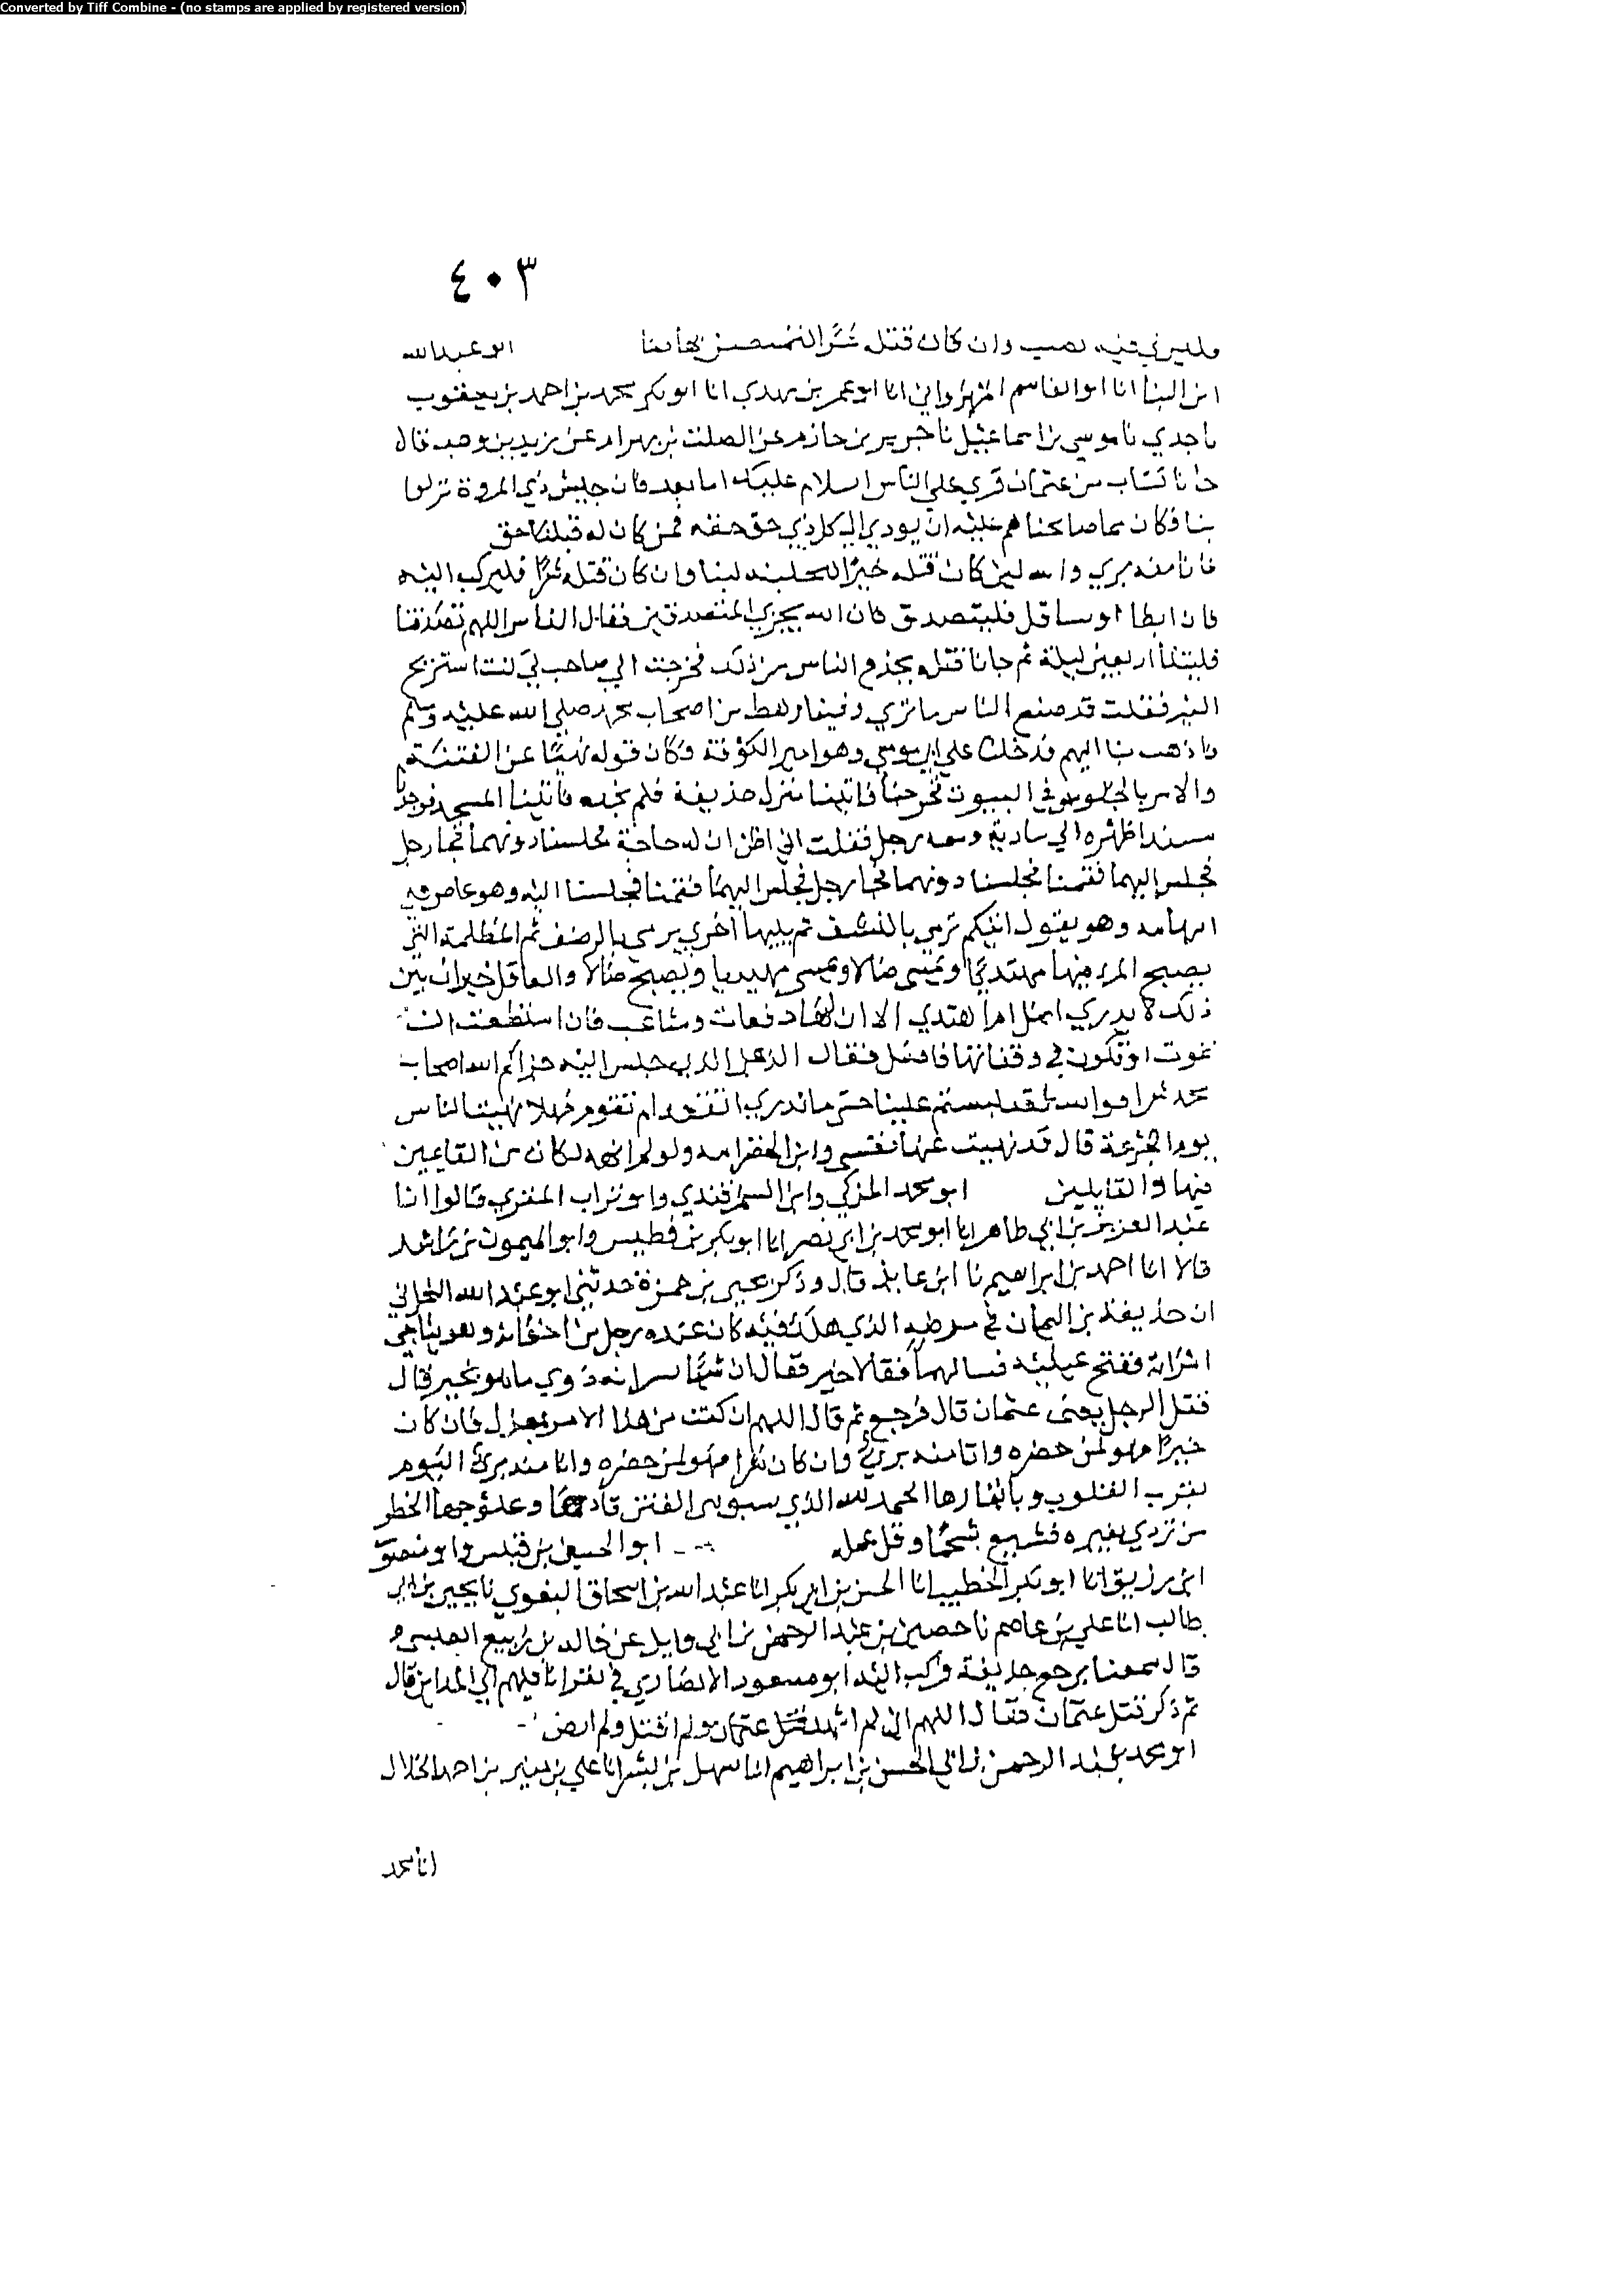 Converted by Tiff Combine - (no stamps are applied by registered version)
٤٠٣
وليس لي فيه نصيب وان كان قتله شرا ابو عبدالله
ابن البنا انا ابو القاسم المهرواني انا ابو عمر بن مهدي انا ابو بكر محمد بن احمد بن يعقوب
نا جدي نا موسى بن اسماعيل نا جرير بن حازم عن الصلت بن بهرام عن زيد بن وهب قال
جانا كتاب من عثمان قري علي الناس السلام عليكم اما بعد فان جيش ذي المروة نزلوا
بنا فكان مما صالحناهم عليه ان يودي الي كل ذي حق حقه فمن كان له قبلنا حق
فانا منه بري والله لين كان قتله خيرا لنا وان كان قتله شرا فليركب اليه
فان ابطا او تثاقل فليتصدق فان الله يجزي المتصدقين فقال الناس اللهم تصدقنا
فلبثنا اربعين ليلة ثم جانا قتله فجزع الناس من ذلك فخرجت الي صاحب لي كنت استريح
اليه فقلت قد صنع الناس ما تري وفينا رهط من اصحاب محمد صلي الله عليه وسلم
فاذهب بنا اليهم فدخلنا علي ابي موسي وهو امير الكوفة فكان قوله نهيا عن الفتنة
والامر بالجلوس في البيوت فخرجنا فاتينا منزل حذيفة فلم نجده فاتينا المسجد فوجدناه
مسندا ظهره الي سارية ومعه رجل فقلت اني اظن ان له حاجة فجلسنا دونهما فجا رجل
فجلس اليهما فقمنا فجلسنا دونهما فجا رجل فجلس اليهما فقمنا فجلسنا اليه وهو عاص علي
ابهامه وهو يقول اتتكم ترمي بالنشف ثم يليها اخري يرمي بالرضف ثم المظلمة التي
يصبح المرء فيها مهتديا ويمسي ضالا ويمسي مهتديا ويصبح ضالا والعاقل حيران بين
ذلك لا يدري اضل ام اهتدي الا ان لها دفعات ومثاعب فان استطعت ان
تموت او تكون في وقفاتها فافعل فقال الرجل الذي جلس اليه جزاكم الله اصحاب
محمد شرا فوالله لقد لبستم علينا حتي ما ندري انقعد ام نقوم فهلا نهيت الناس
يوم الجرعة قال قد نهيت عنها نفسي وابن الخضرامه ولو لم انهه لكان من القايمين
فيها والقايلين ابو محمد المزكي وابن السمرقندي وابو تراب المقري قالوا انا
عبد العزيز بن ابي طاهر انا ابو محمد بن ابي نصر انا ابو بكر بن فطيس وابو الميمون بن راشد
قالا انا احمد بن ابراهيم نا ابن عايذ قال وذكر يحيي بن حمزة حدثني ابو عبد الله النجراني
ان حذيفة بن اليمان في مرضه الذي هلك فيه كان عنده رجل من اخوانه وهو يناجي
امراته ففتح عينيه فسالهما فقالا خير فقال ان شيا تسرانه دوني ما هو بخير قال
قتل الرجل يعني عثمان قال فرجع ثم قال اللهم ان كنت من هذا الامر بمعزل فان كان
خيرا فهو لمن حضره وانا منه بري وان كان شرا فهو لمن حضره وانا منه بري اليوم
القلوب الحمد لله الذي سبق بي الفتن قادتها وعلوجها الخطر
من تردي بغيره فشبع شحما وقل عمله ابو الحسن بن قبيس وابو منصور
ابن زريق انا ابو بكر الخطيب انا الحسن بن ابي بكر انا عبد الله بن اسحاق البغوي نا يحيي بن ابي
طالب انا علي بن عاصم نا حصين بن عبد الرحمن عن ابي وايل عن خالد بن ربيع العبسي
قال سمعنا برجع حذيفة فركب اليه ابو مسعود الانصاري في نفر انا فيهم الي المداين قال
ثم ذكر قتل عثمان فقال اللهم اني لم اشهد قتل عثمان ولم اقتل ولم ارض
ابو محمد عبد الرحمن بن ابي الحسن بن ابراهيم انا سهل بن بشر انا علي بن منير بن احمد الخلال
انا محمد